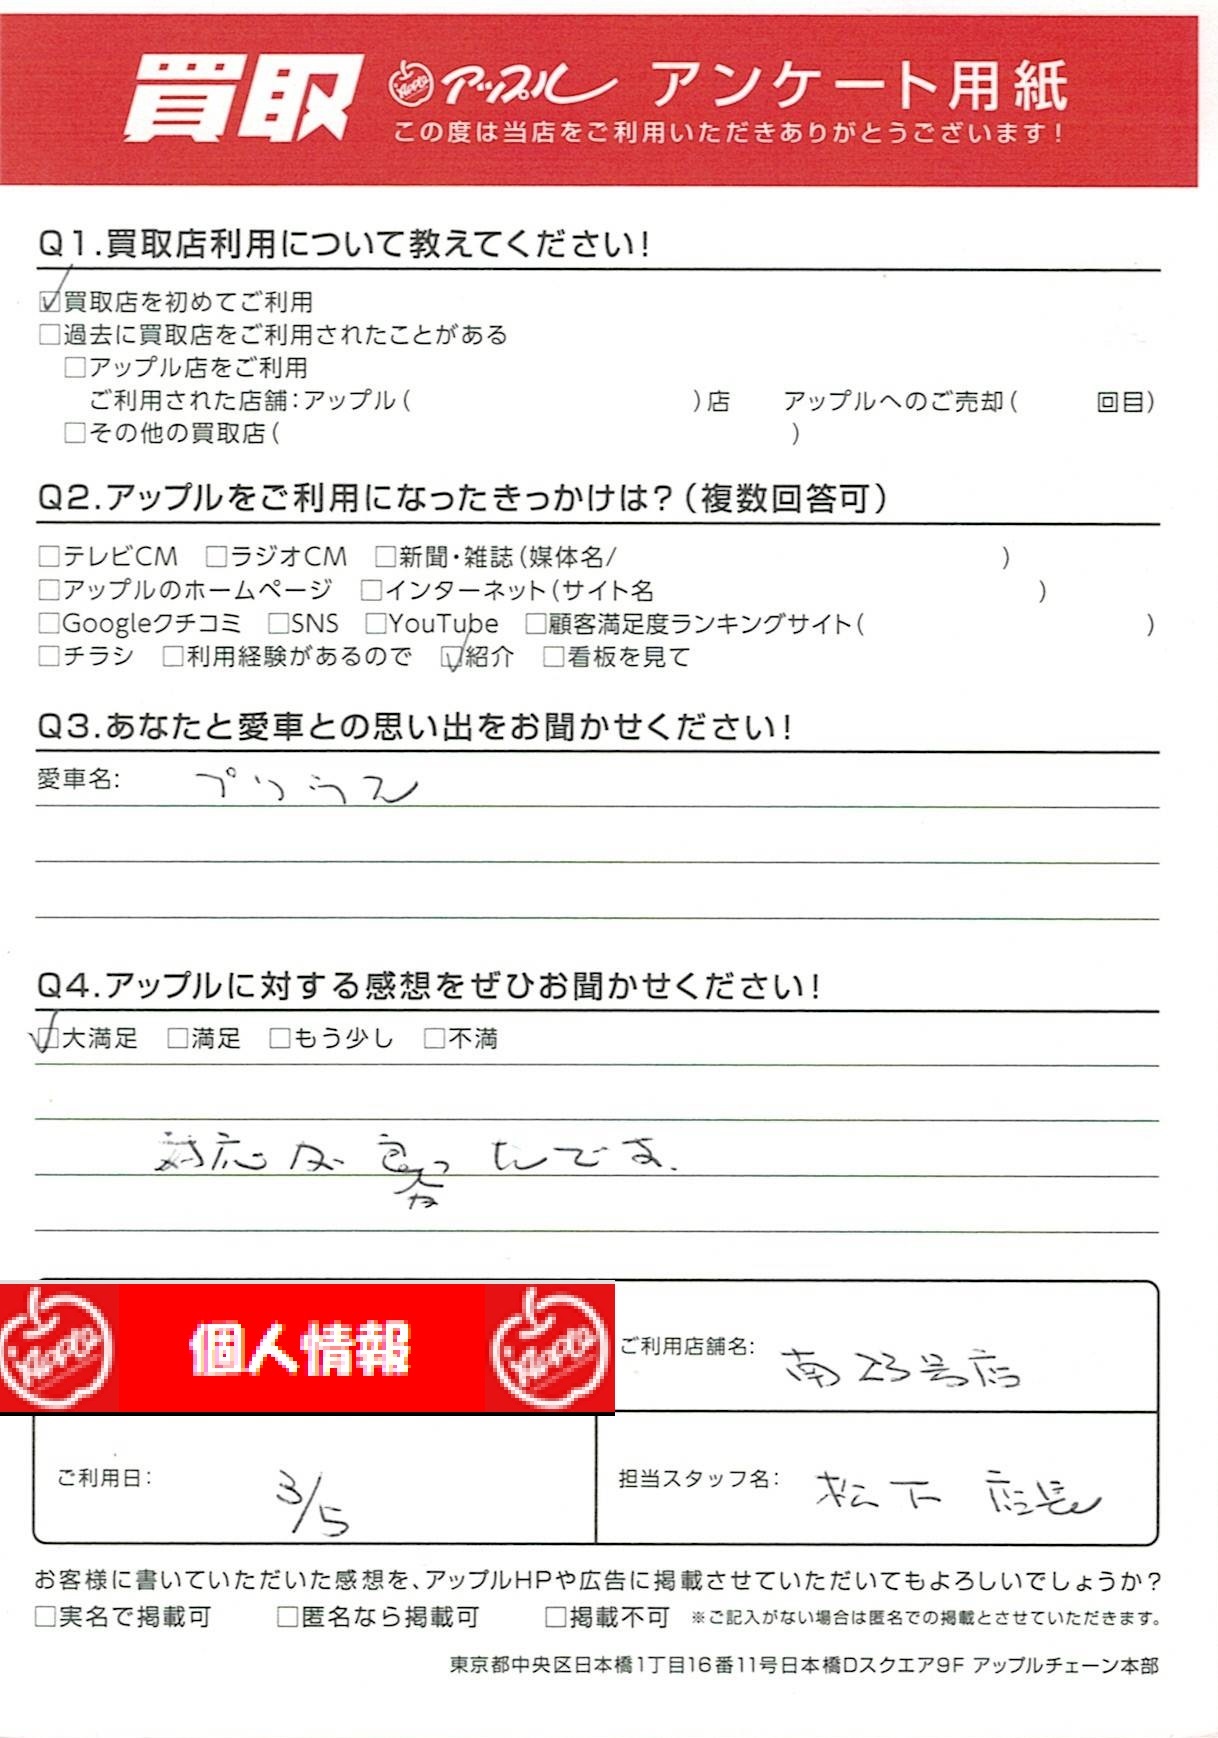 買取 Apple アップル アンケート用紙
この度は当店をご利用いただきありがとうございます!
Q1.買取店利用について教えてください!
☑買取店を初めてご利用
□過去に買取店をご利用されたことがある
□アップル店をご利用
ご利用された店舗:アップル( )店 アップルへのご売却( 回目)
□その他の買取店( )
Q2.アップルをご利用になったきっかけは?(複数回答可)
□テレビCM □ラジオCM □新聞・雑誌(媒体名/ )
□アップルのホームページ □インターネット(サイト名 )
□Googleクチコミ □SNS □YouTube □顧客満足度ランキングサイト( )
□チラシ □利用経験があるので ☑紹介 □看板を見て
Q3.あなたと愛車との思い出をお聞かせください!
愛車名: プリウス
Q4.アップルに対する感想をぜひお聞かせください!
☑大満足 □満足 □もう少し □不満
対応が良かったです.
Apple 個人情報 Apple
ご利用店舗名: 南23号店
ご利用日: 3/5
担当スタッフ名: 松下 店長
お客様に書いていただいた感想を、アップルHPや広告に掲載させていただいてもよろしいでしょうか?
□実名で掲載可 □匿名なら掲載可 □掲載不可 ※ご記入がない場合は匿名での掲載とさせていただきます。
東京都中央区日本橋1丁目16番11号日本橋Dスクエア9F アップルチェーン本部